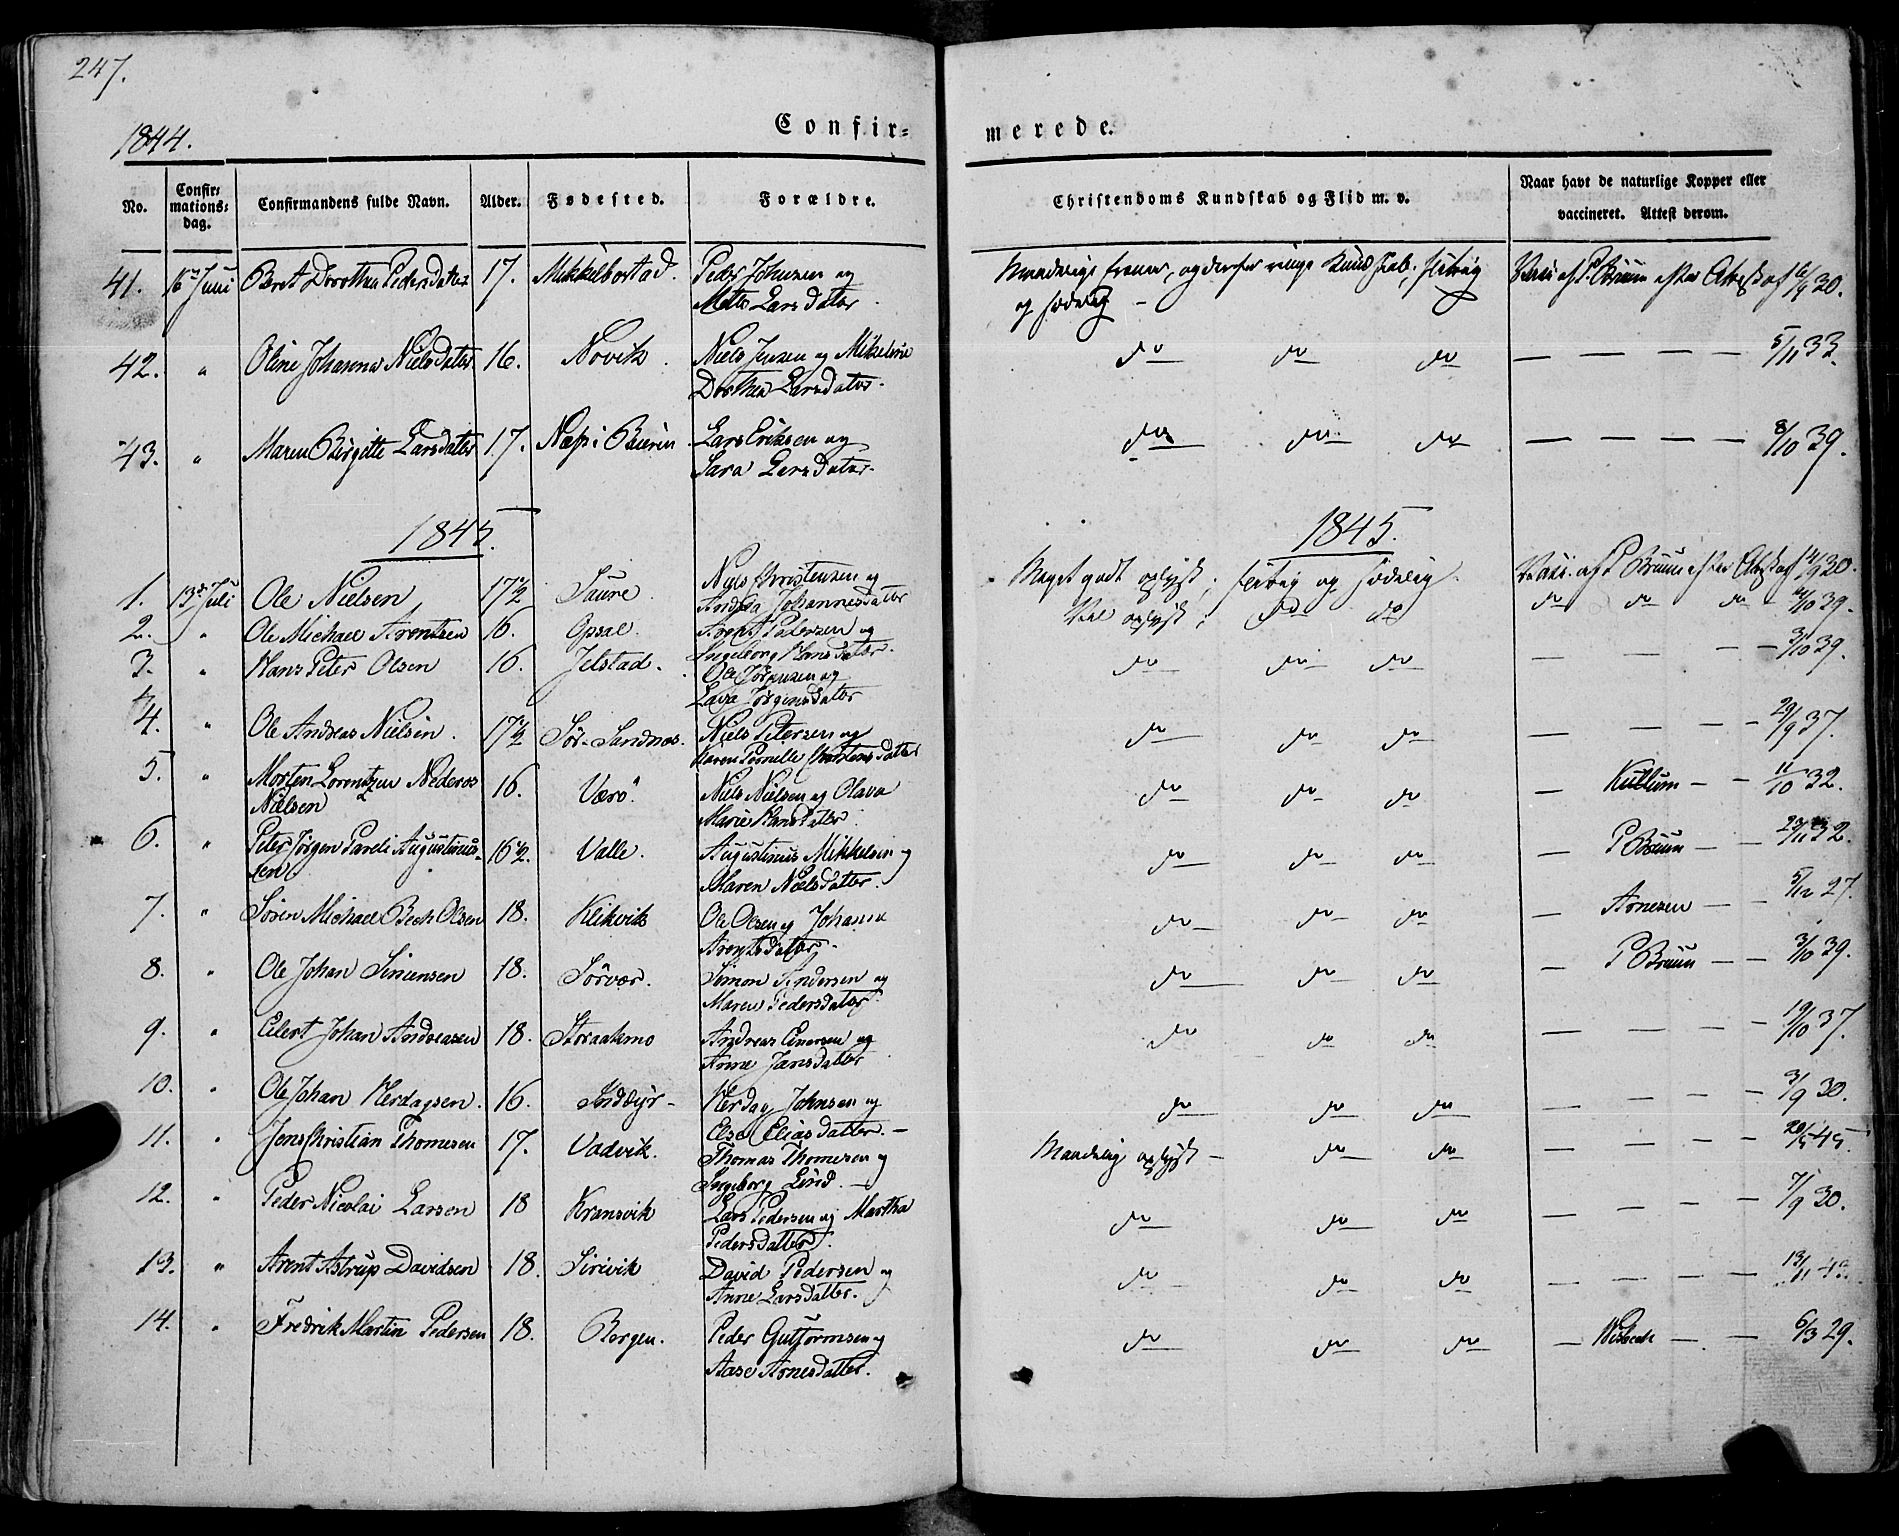 247.
1844.
Confir=
merede.
No.
Confir=
mations=
dag.
Confirmandens fulde Navn.
Alder.
Fødested.
Forældre.
Christendoms Kundskab og Flid m. v.
Naar havt de naturlige Kopper eller
vaccineret. Attest derom.
41. 16 Juni Berit Dorothea Pedersdatter 17. Mikkelbostad. Peder Johnsen og
Mette Larsdatter.
og sædelig
Vacc. af P. Bruun efter Attest af 16/9 30.
42. " Oline Johanna Nielsdatter 16. Novik. Niels Jensen og Mikeline
Dorthea Larsdatter.
do do do — — — — 5/11 33.
43. " Maren Birgitte Larsdatter 17. Næss i Beiern Lars Eriksen og
Sara Larsdatter.
do do do — — — — 8/10 39.
1845.
1845.
1. 13de Juli Ole Nielsen 17½ Saure. Niels Christensen og
Andrea Johannesdatter
Meget godt oplyst; flittig og sædelig.
Vacc. af P Bruun efter Attest af 14/9 30.
2. " Ole Michael Arentsen 16. Opsal. Arent Petersen og
Ingeborg Hansdatter.
Vel oplyst; do do
do do do 4/10 39.
3. " Hans Peter Olsen 16. Jelstad. Ole Jörgensen og
Lava Jörgensdatter
do do do — — — — 3/10 39.
4. " Ole Andreas Nielsen. 17½ Sör-Sandnes. Niels Petersen og
Karen Pernille Christensdatter
do do do — — — — 29/9 37.
5. " Morten Lorentzen Nederos
Nielsen 16. Værö. Niels Nielsen og Olava
Marie Hansdatter
do do do — Kullum — — 11/10 32.
6. " Peter Jörgen Pareli Augustinus-
sen 16½. Valle. Augustinus Mikkelsen og
Maren Nielsdatter.
do do do — P Bruun — — 29/11 32.
7. " Sören Michael Bech Olsen 18. Klikvik Ole Olsen og Johanna
Arentsdatter.
do do do — Arnesen — — 5/12 27.
8. " Ole Johan Simensen 18. Sörvær. Simon Andersen og
Maren Pedersdatter
do do do — P Bruun — — 3/10 39.
9. " Eilert Johan Andreasen 18. Storaakmo Andreas Enersen og
Anne Jansdatter
do do do — — — — 19/10 37.
10. " Ole Johan Herdagsen. 16. Inddyr Herdag Johnsen og
Else Eliasdatter. —
do do do — — — — 3/9 30.
11. " Jens Christian Thomesen 17. Vadvik. Thomas Thomesen og
Ingeborg Lind. —
Maadelig oplyst — do do — — — — 20/5 45
12. " Peder Nicolai Larsen 18 Kransvik Lars Pedersen og Martha
Pedersdatter.
do do do — — — — 7/9 30.
13. " Arent Astrup Davidsen 18. Sirivik David Pedersen og
Anne Larsdatter.
do do do — — — — 13/11 43.
14. " Fredrik Martin Pedersen 18. Bergen. Peder Guttormsen og
Aase Arnesdatter.
do do do — — — 6/3 29.